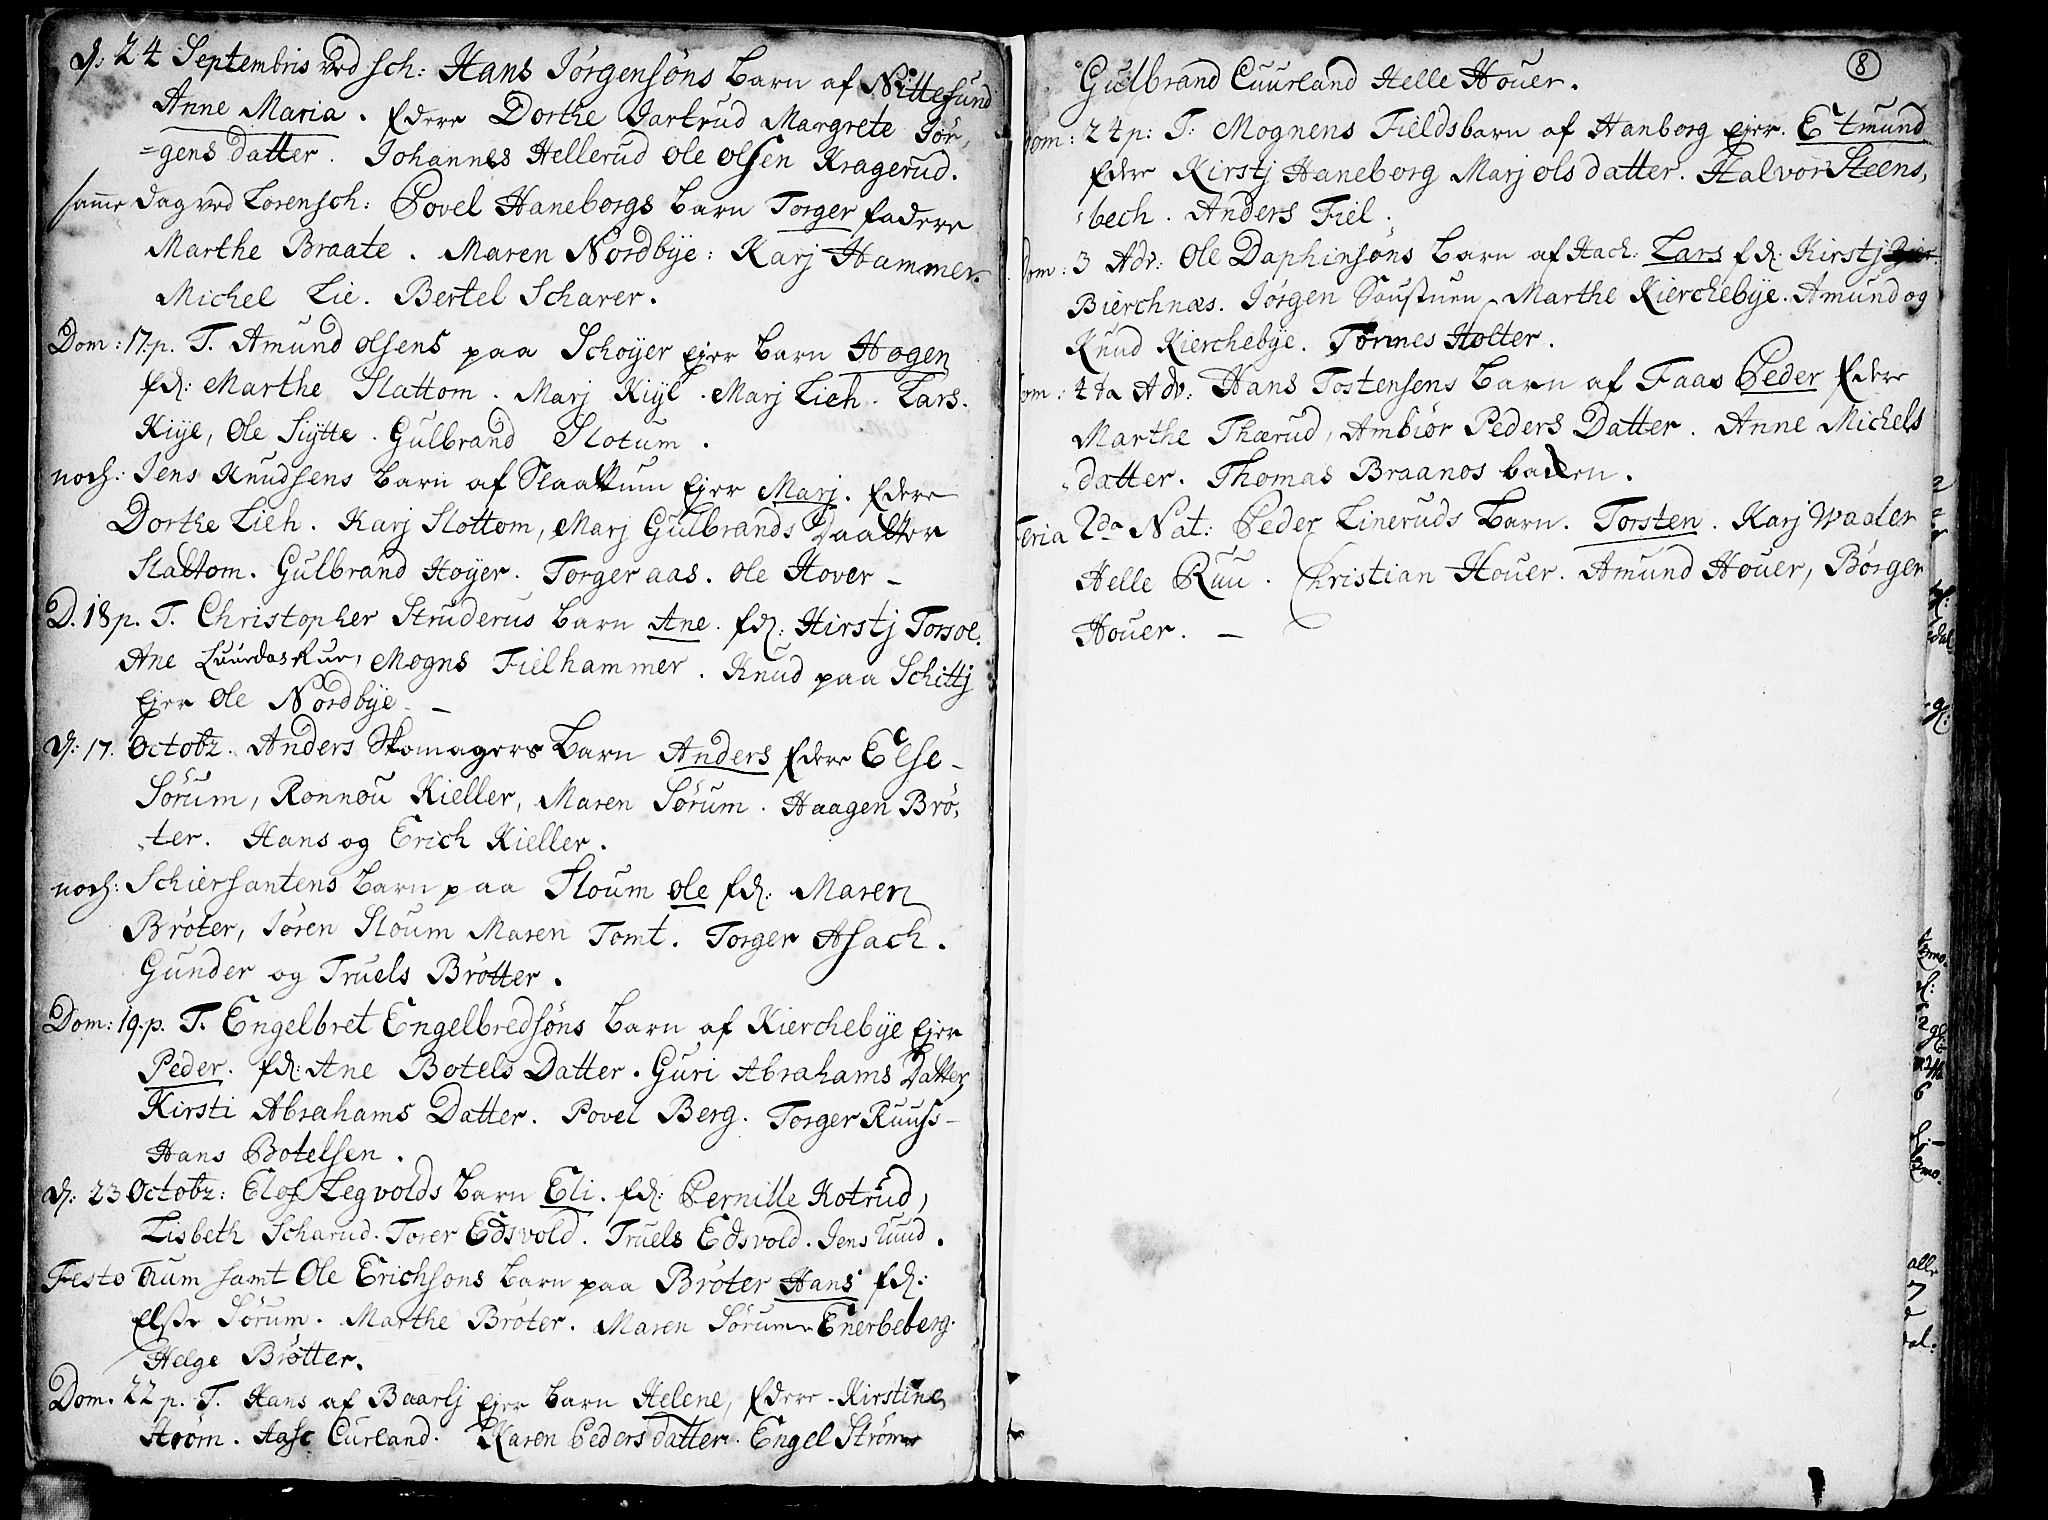 d: 24 Septembris ved sch: Hans Jørgensøns barn af Nittesund
Anne Maria. fdere Dorthe Jartrud Margrete Jør,
=gens datter. Johannes Hellerud Ole Olsen Kragerud.
samme dag ved Lorensch: Povel Haneborgs barn Torger fadere
Marthe Braate. Maren Nordbye: Karj Hammer.
Michel Lie. Bertel Scharer.
Dom: 17.p. T. Amund Olsens paa Schoyer Ejer barn Hogen
fd: Marthe Slattom. Marj Kiyl. Marj Lieh. Lars.
Kiye, Ole Siytte. Gulbrand Slotum.
noch: Jens Knudsens barn af Slaattum Ejer Marj. fdere
Dorthe Lieh. Karj Slottom, Marj Gulbrands Daatter
Slattom. Gulbrand Hoyer. Torger aas. Ole Hover –
D. 18 p. T. Christopher Struderus barn Ane. fd: Kirstj Torsoe.
Ane Luurdaskur, Mogns Fielhammer. Knud paa Schittj
Ejer Ole Nordbye. –
d: 17. Octobr. Anders Skomagers barn Anders fdere Else –
Sørum, Ronnou Kieller, Maren Sørum. Haagen Brø,
,ter. Hans og Erich Kieller.
noch: Schiersantens barn paa Sloum Ole fd: Maren
Brøter, Søren Sloum Maren Tomt. Torger Asach.
Gunder og Truels Brøtter.
Dom: 19.p. T. Engelbret Engelbredsøns barn af Kierchebye Ejer
Peder. fd: Ane Botels Datter. Guri Abrahams Datter
Kirsti Abrahams Datter. Povel Berg. Torger Ruuss –
Hans Botelsen.
d: 23 Octobr: Elof Legvolds barn Eli. fd: Pernille Kotrud,
Lisbeth Scharud. Torer Edsvold. Truels Edsvold. Jens Ruud.
Festo Oium samt Ole Erichsøns barn paa Brøter Hans fd:
Elsse Sørum. Marthe Brøter. Maren Sørum Enerbeberg.
Helge Brøtter.
Dom. 22 p. T. Hans af Baarlj Ejer barn Helene, fdere. Kirstine
Strøm. Aase Curland. Karen Peders datter. Engel Strøm
8
Gulbrand Cuurland Helle Houer.
Dom: 24 p: T: Mognens Fieldsbarn af Hanborg Ejer. Etmund
fdere Kirstj Haneborg Marj ols datter. Halvor Steens,
,bech. Anders Fiel.
Dom: 3 Adv: Ole Daphinsøns barn af Hach: Lars fd: Kirstj
Bierchnæs. Jørgen Soustuen, Marthe Kierchebye. Amund og
Knud Kierchebye. Tørmes Holter.
Dom: 4ta Adv: Hans Tostensens barn af Faas Peder fdere
Marthe Thærud, Ambiør Peders Datter. Anne Michels
,datter. Thomas Braanos backen.
Feria 2da Nat: Peder Lineruds barn. Torsten. Karj Waaler
Helle Ruu. Christian Houer. Amund Houer, Børger
Houer. –